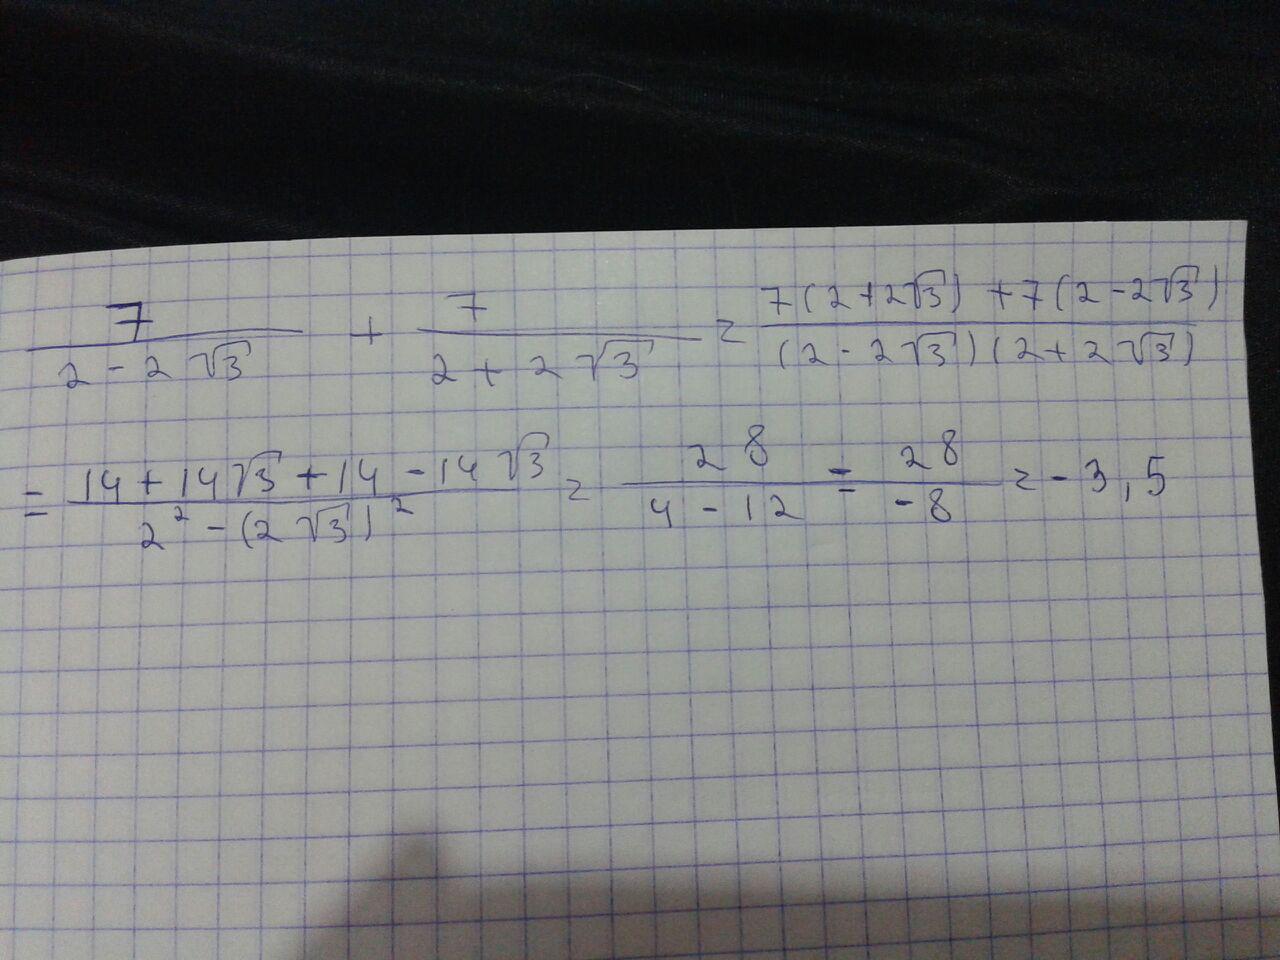 7/(2 - 2√3) + 7/(2 + 2√3) = (7(2+2√3) + 7(2-2√3))/((2-2√3)(2+2√3))
= (14 + 14√3 + 14 - 14√3)/(2² - (2√3)²) = 28/(4 - 12) = 28/(-8) = -3,5